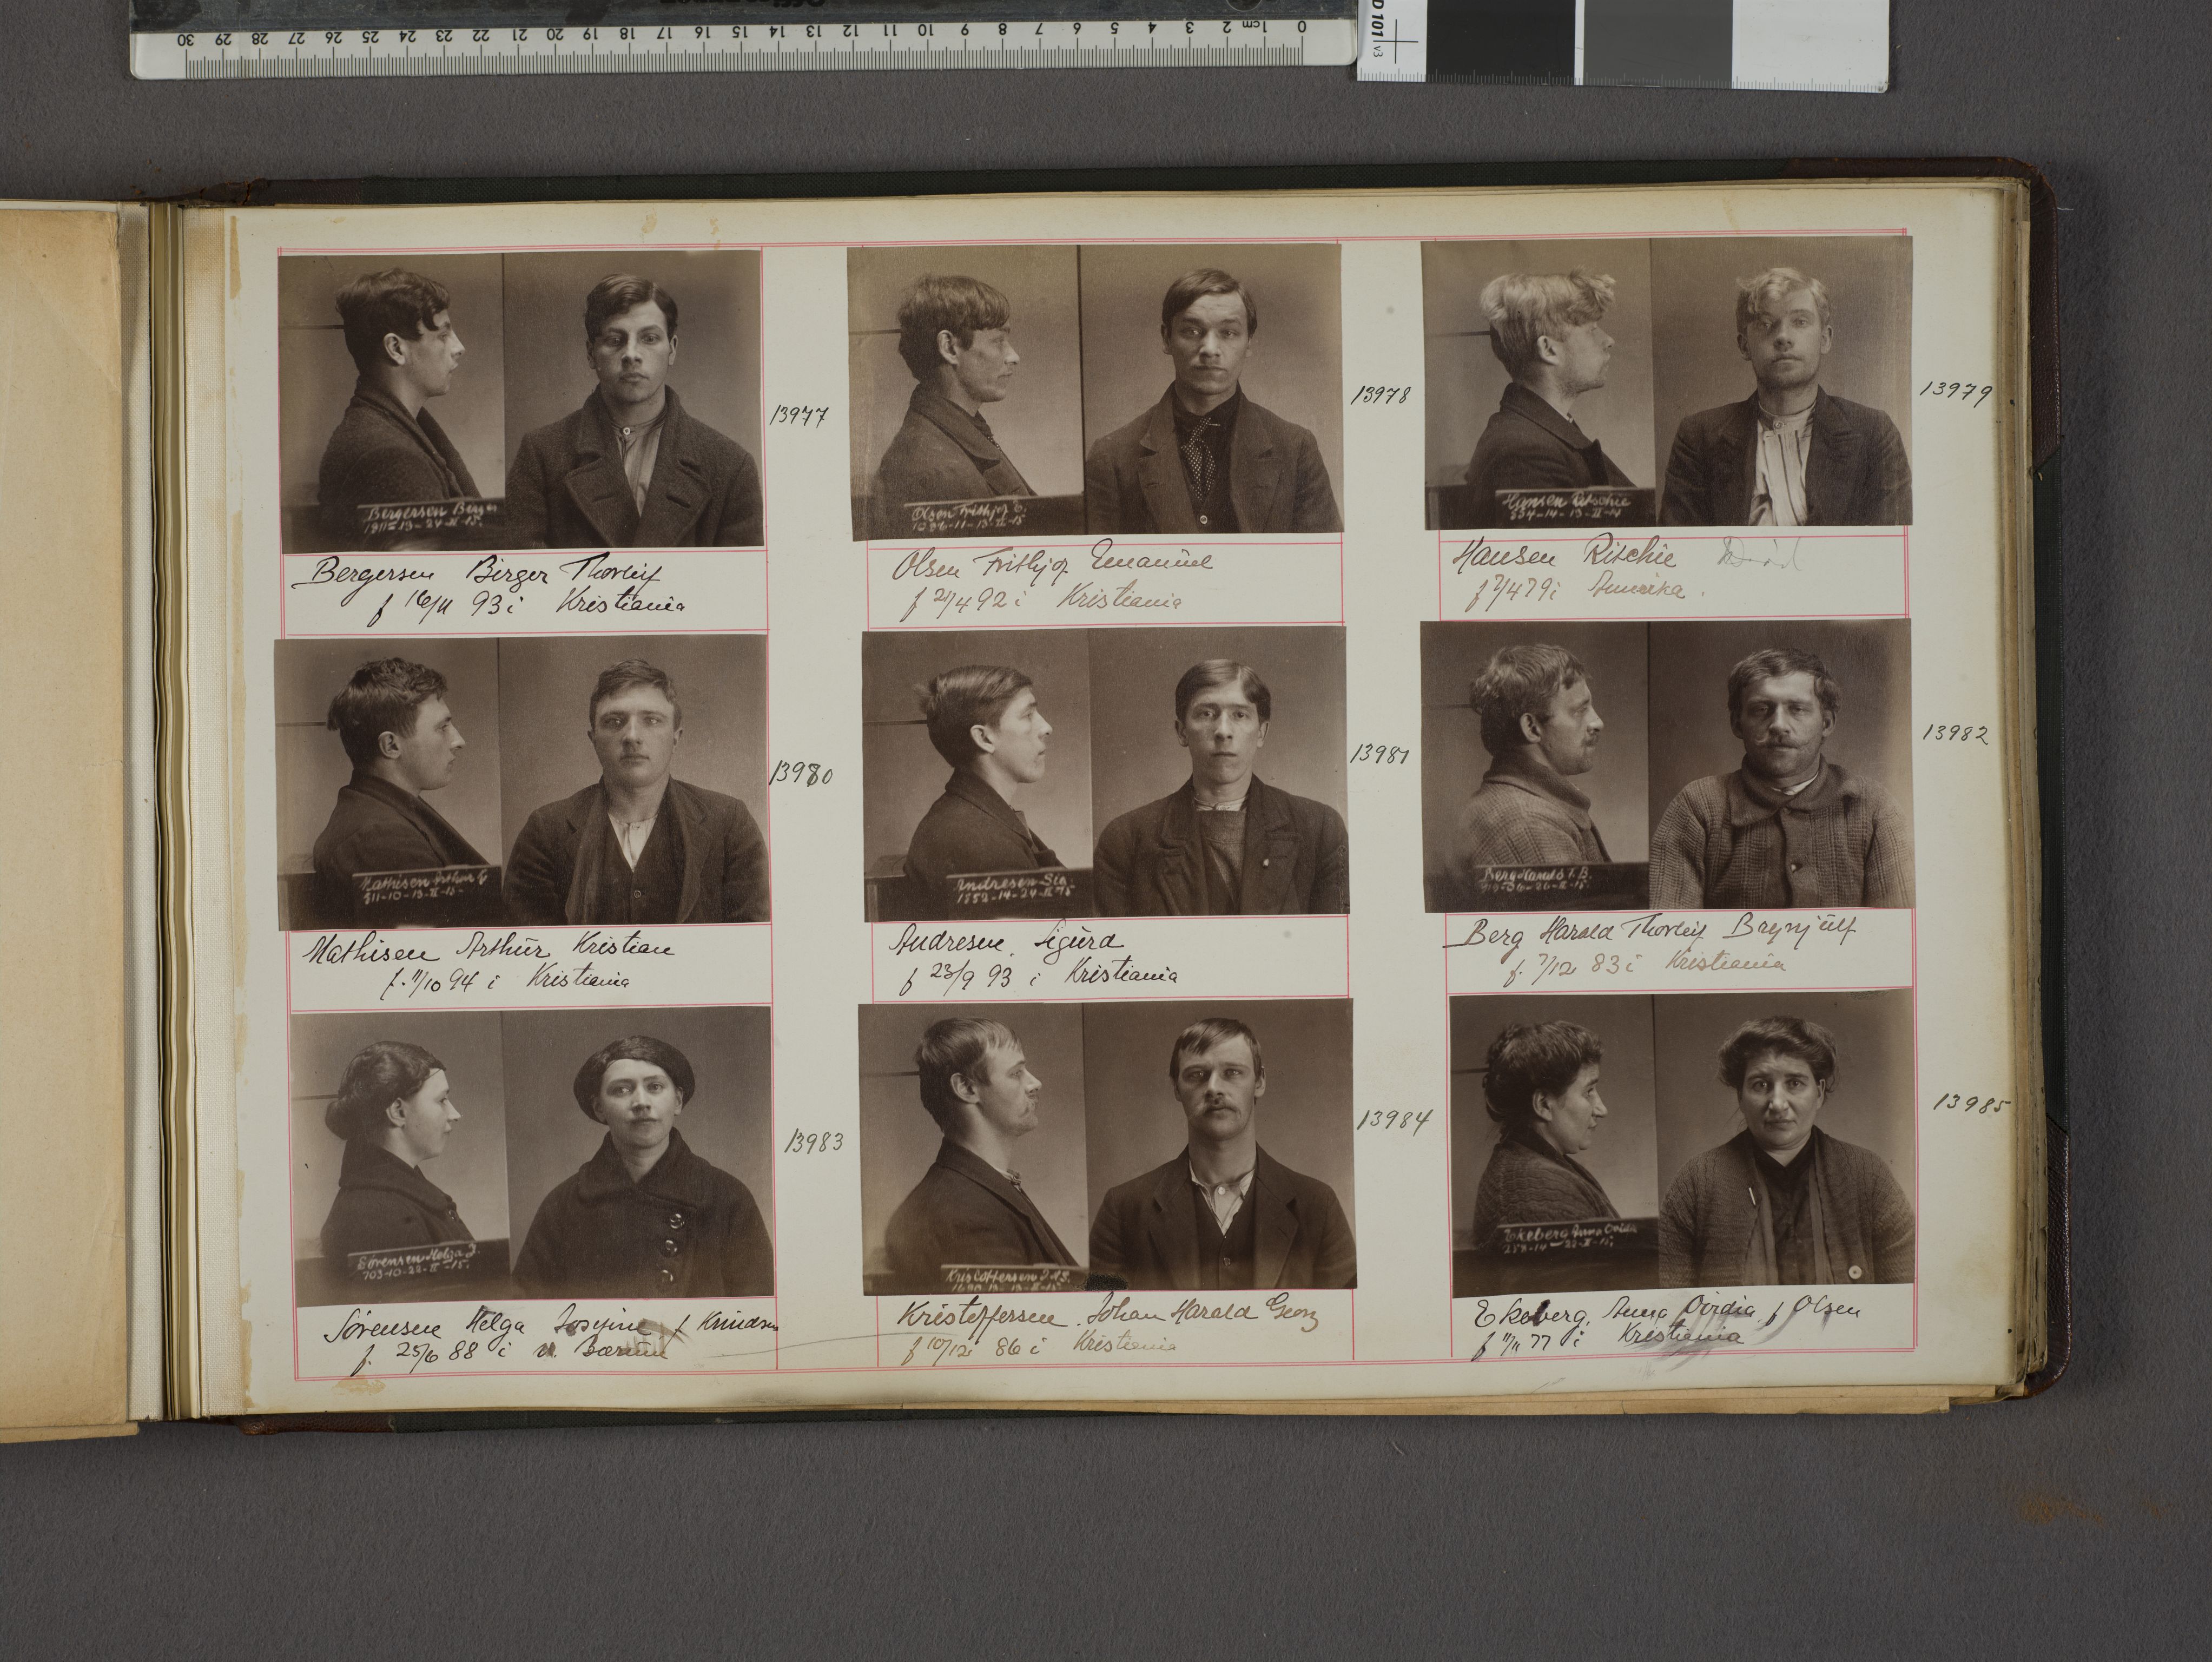 30 29 28 27 26 25 24 23 22 21 20 19 18 17 16 15 14 13 12 11 10 9 8 7 6 5 4 3 2 1cm 0
D 101 v3
Bergersen Birger
13977
Bergersen Birger Thorleif
f 16/11 93 i Kristiania
Olsen Frithjof E.
13978
Olsen Frithjof Emanuel
f 21/4 92 i Kristiania
Hansen Ritschie
334-14-13-II-14
13979
Hansen Ritchie
f 7/4 79 i Amerika.
Mathisen Arthur K
511-10-13-II-15-
13980
Mathisen Arthur Kristian
f. 11/10 94 i Kristiania
Andresen Sig.
1552-14-24-II-15
13981
Andresen, Sigurd
f 23/9 93 i Kristiania
Berg Harald T. B.
13982
Berg Harald Thorleif Brynjulf
f. 7/12 83 i Kristiania
Sørensen Helga J.
703-10-22-II-15.
13983
Sørensen Helga Josefine f Knudsen
f. 25/6 88 i V. Bærum
Kristoffersen J. H. G.
13984
Kristoffersen, Johan Harald Georg
f 10/12 86 i Kristiania
Ekeberg Anna Ovidia
258-14-22-II-15.
13985
Ekeberg, Anna Ovidia f Olsen
f 11/11 77 i Kristiania